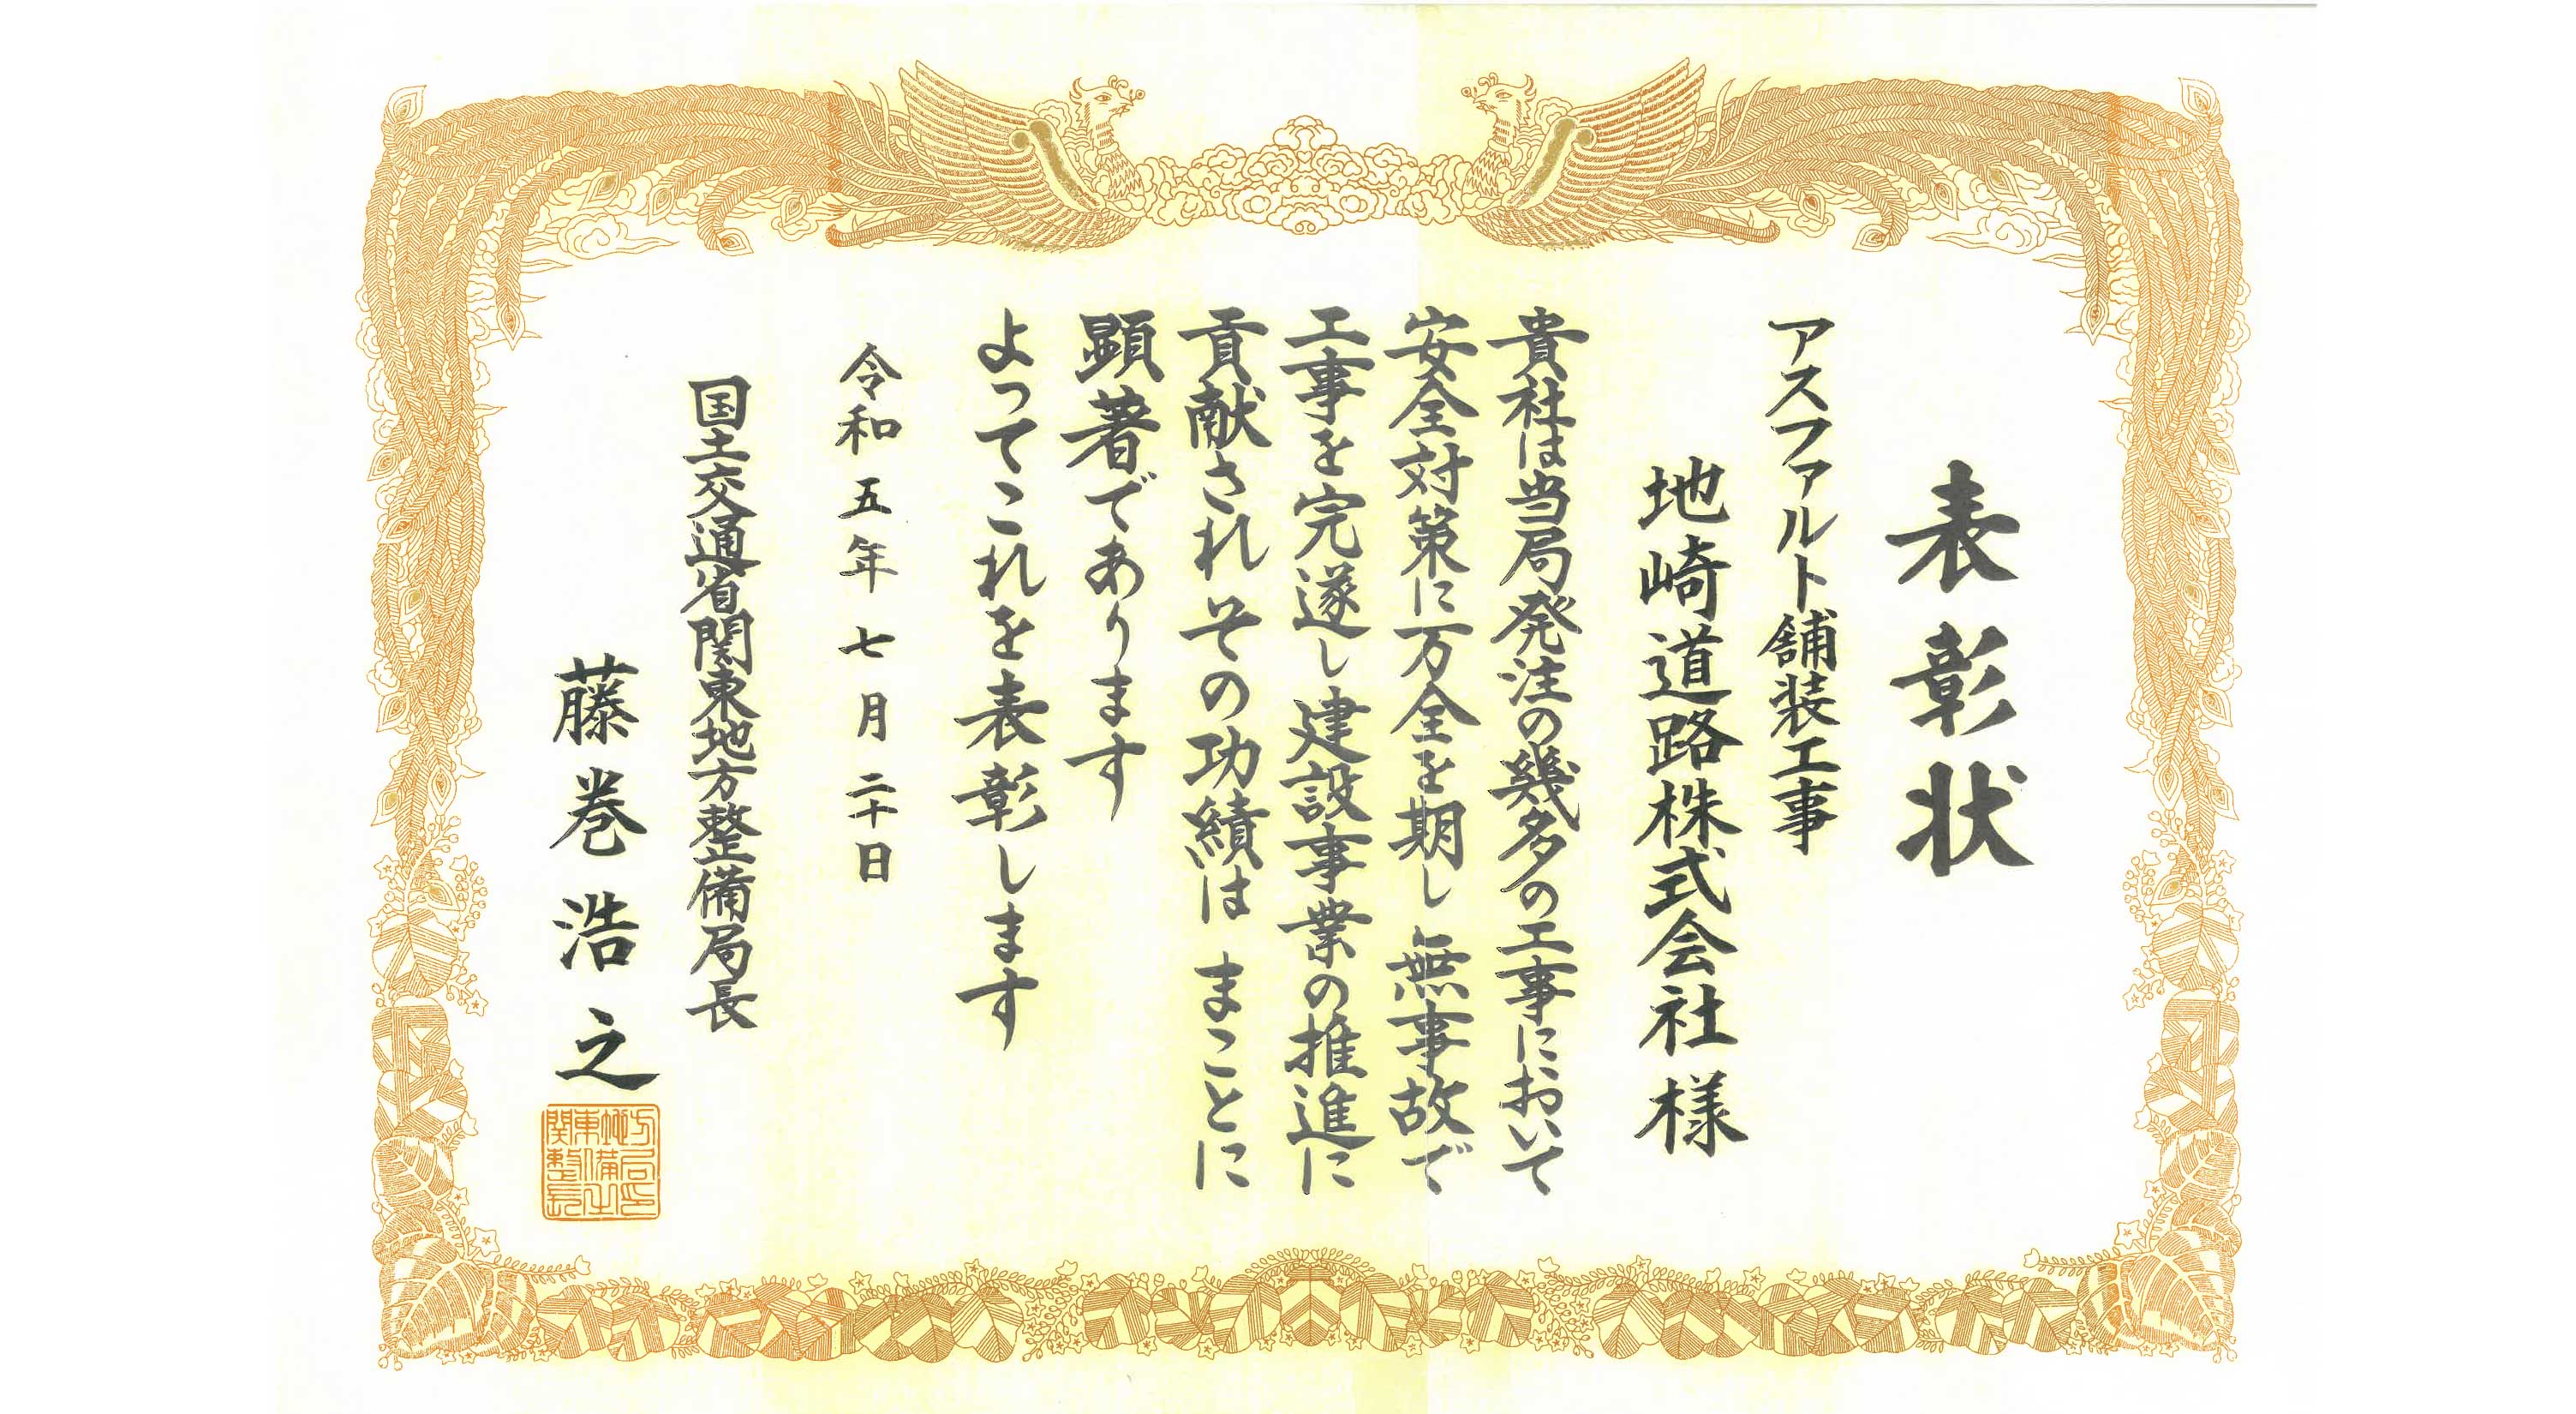 表彰状
アスファルト舗装工事
地崎道路株式会社様
貴社は当局発注の幾多の工事において
安全対策に万全を期し無事故で
工事を完遂し建設事業の推進に
貢献されその功績は まことに
顕著であります
よってこれを表彰します
令和五年七月二十日
国土交通省関東地方整備局長
藤巻浩之
関東地方整備局長之印